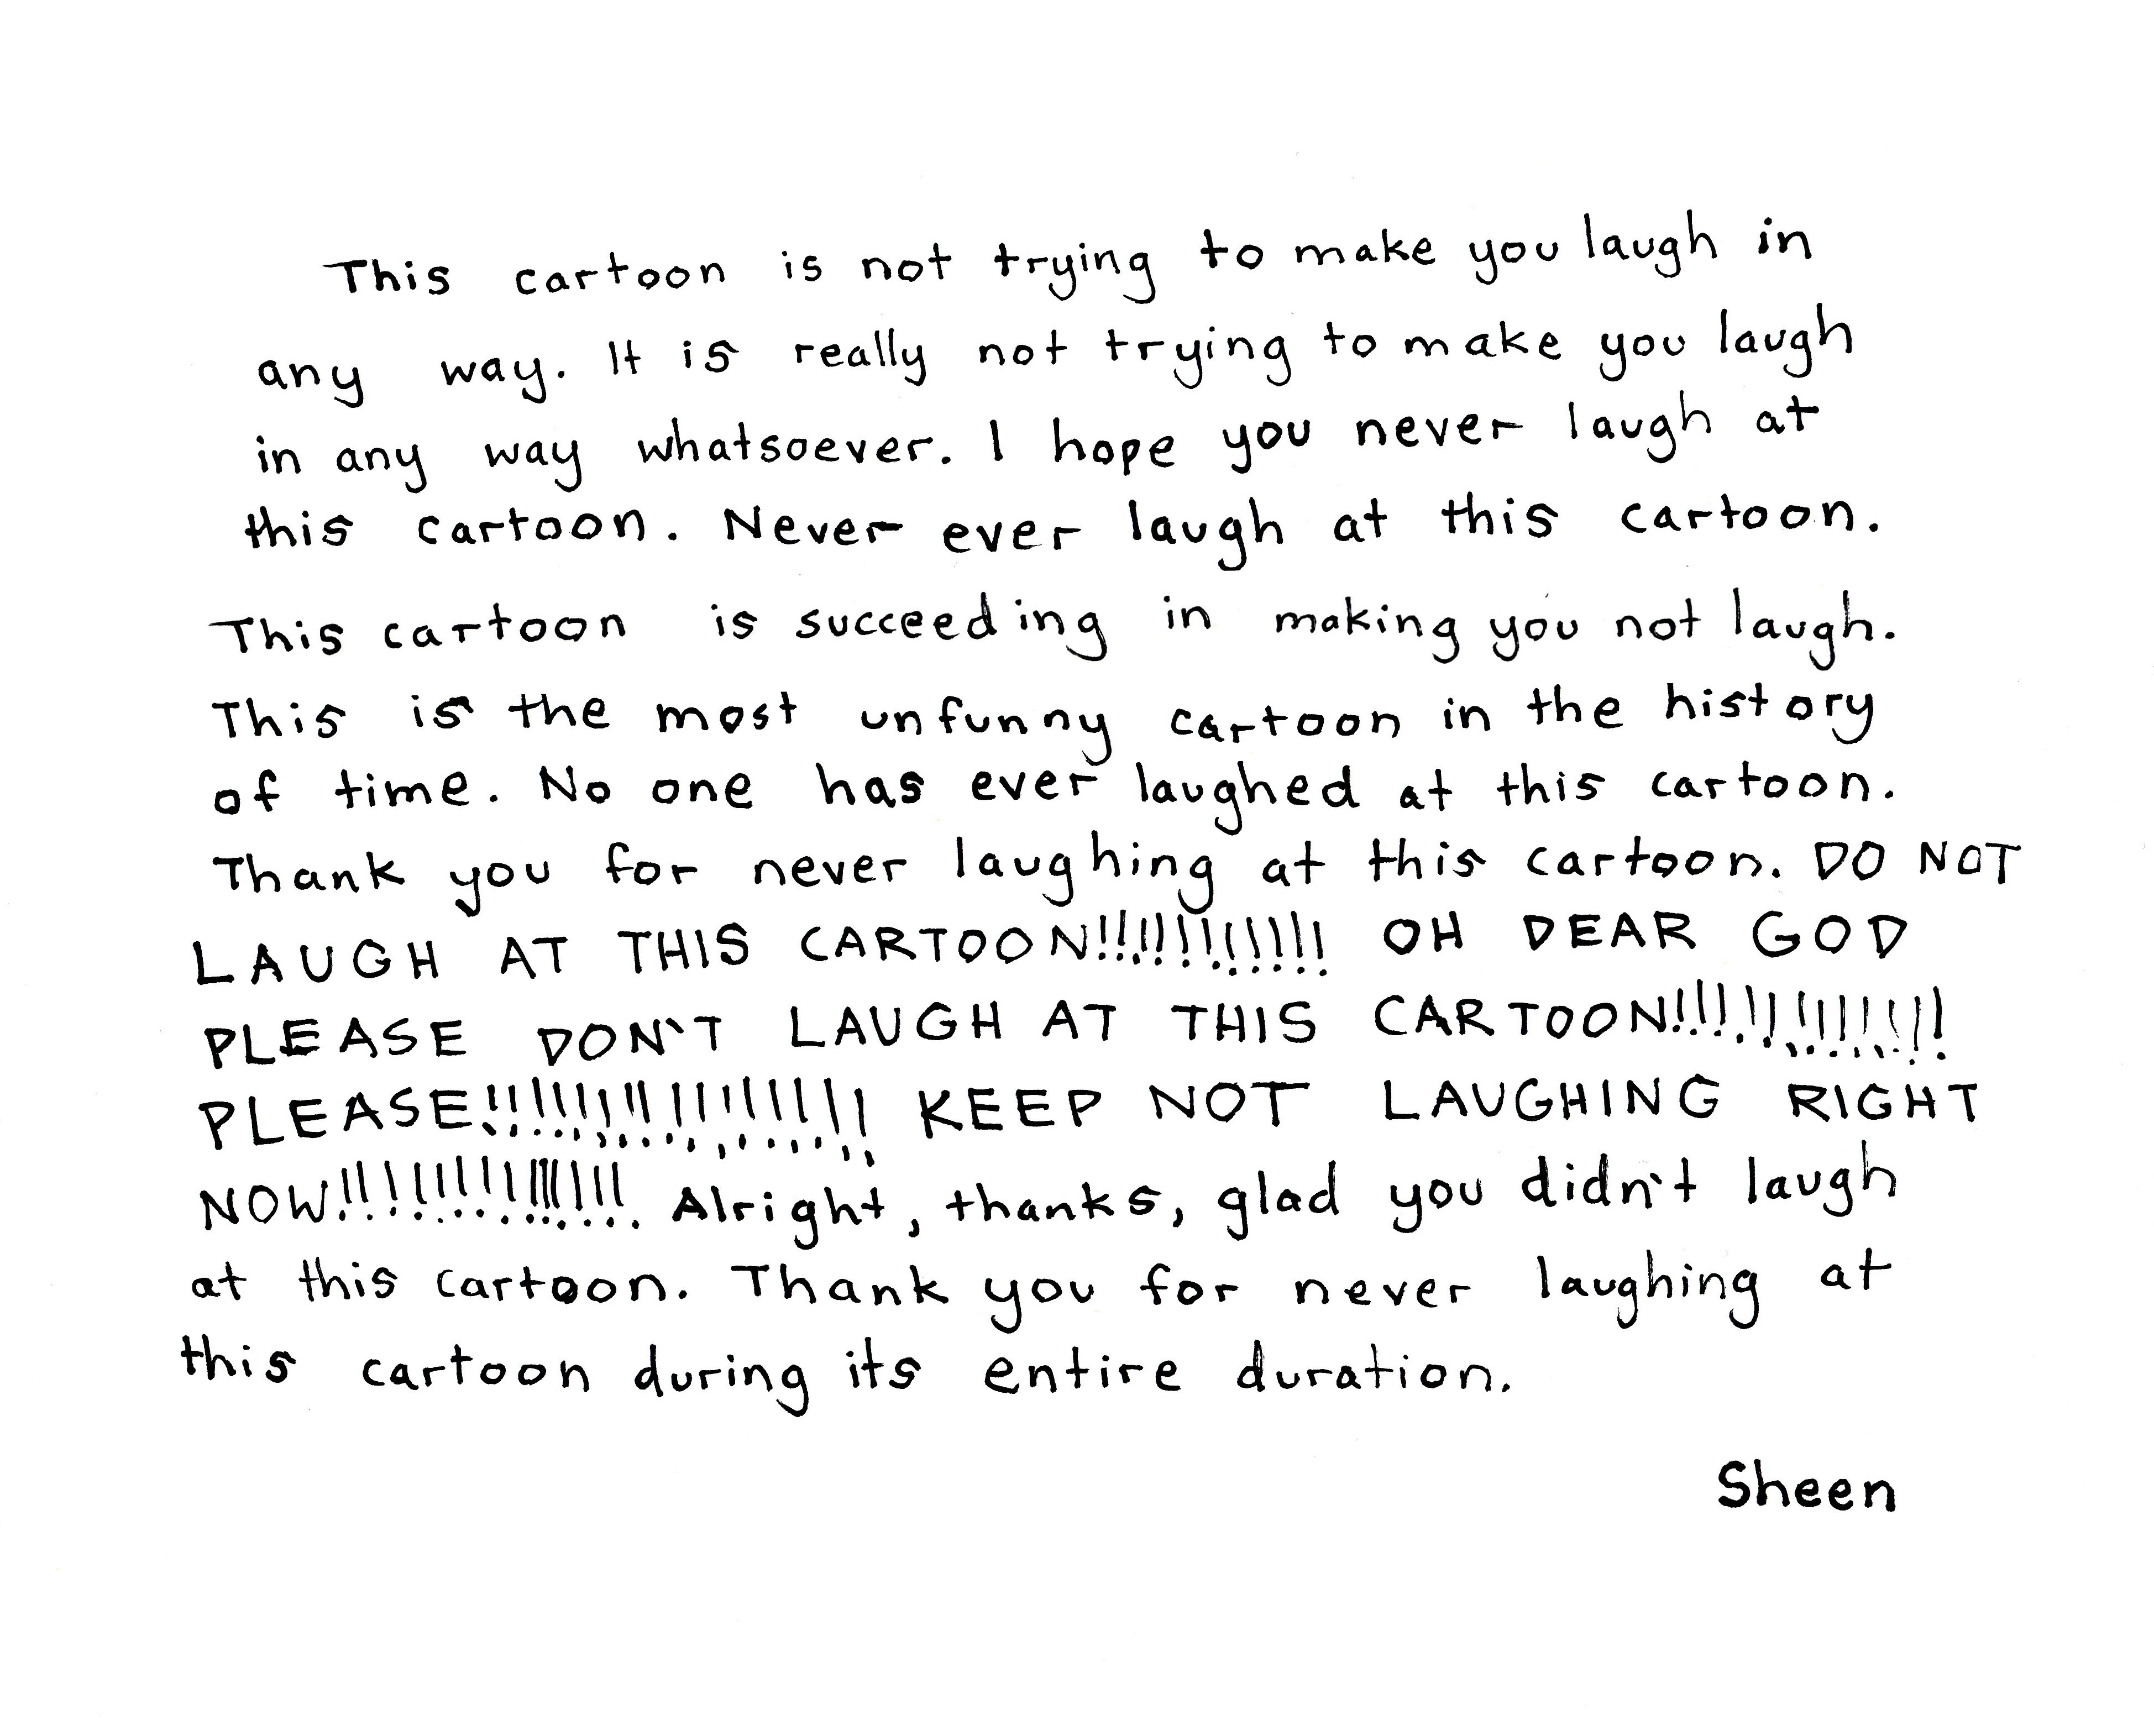 This cartoon is not trying to make you laugh in
any way. It is really not trying to make you laugh
in any way whatsoever. I hope you never laugh at
this cartoon. Never ever laugh at this cartoon.
This cartoon is succeeding in making you not laugh.
This is the most unfunny cartoon in the history
of time. No one has ever laughed at this cartoon.
Thank you for never laughing at this cartoon. DO NOT
LAUGH AT THIS CARTOON!!!!!!!!!!!!! OH DEAR GOD
PLEASE DON'T LAUGH AT THIS CARTOON!!!!!!!!!!!!!!
PLEASE!!!!!!!!!!!!!!!!!!! KEEP NOT LAUGHING RIGHT
NOW!!!!!!!!!!!!!!!! Alright, thanks, glad you didn't laugh
at this cartoon. Thank you for never laughing at
this cartoon during its entire duration.
Sheen